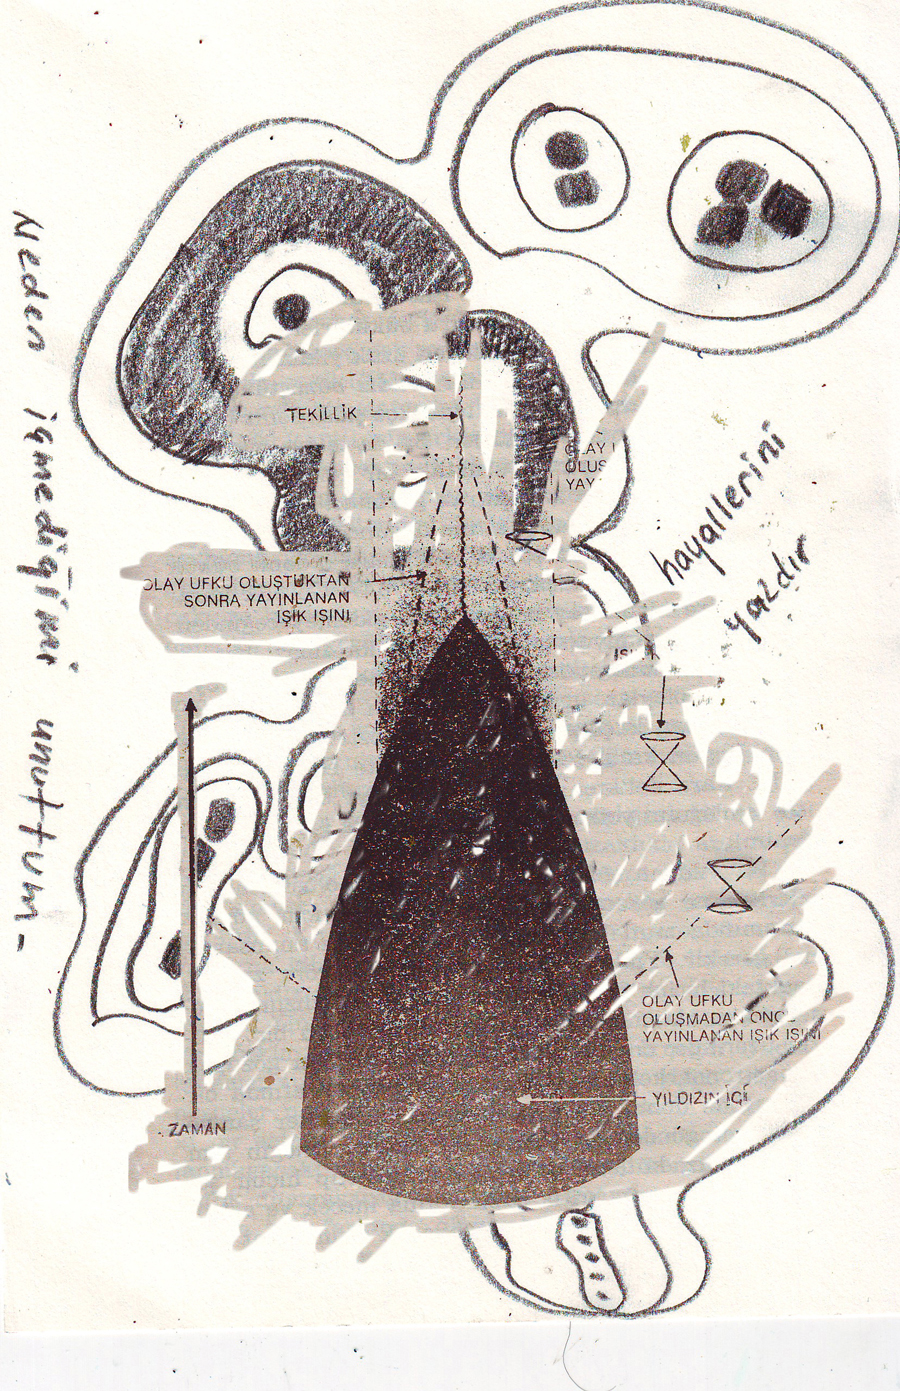 Neden içmediğimi unuttum-
TEKİLLİK
OLAY
hayallerini
yazdır
OLAY UFKU OLUŞTUKTAN
SONRA YAYINLANAN
IŞIK IŞINI
OLAY UFKU
OLUŞMADAN ÖNCE
YAYINLANAN IŞIK IŞINI
YILDIZIN İÇİ
ZAMAN